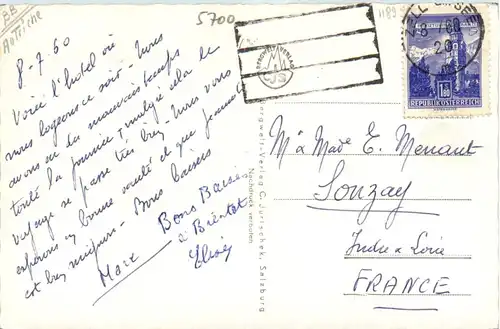 BB
Autriche
5700
1189
8-7-60
Voici l'hôtel où
nous logeons ce soir - Nous
avons eu du mauvais temps
toute la journée malgré cela le
voyage se passe très bien. Nous vous
espérons en bonne santé et que
est bien toujours - Bons baisers
Marc
Bons Baisers
à Bientôt
BERGWELT-VERLAG
CJS
Bergwelt-Verlag C. Jurischek, Salzburg
Nachdruck verboten
ZELL AM SEE
60
20
1.80
REPUBLIK ÖSTERREICH
M & Made E. Menant
Sonzay
Indre & Loire
FRANCE